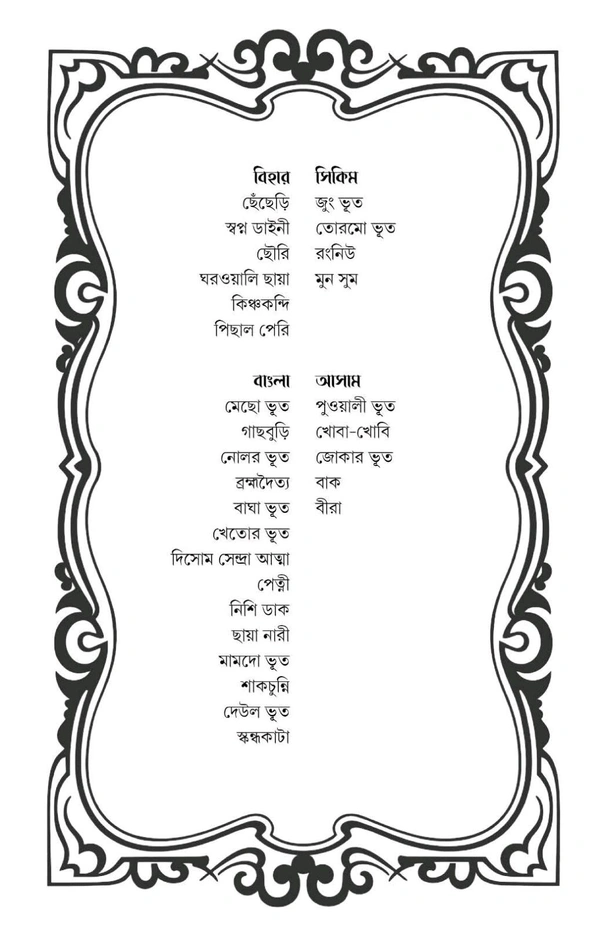 বিহার
ছেঁছেড়ি
স্বপ্ন ডাইনী
ছৌরি
ঘরওয়ালি ছায়া
কিঞ্চকন্দি
পিছাল পেরি
সিকিম
জুং ভূত
তোরমো ভূত
রংনিউ
মুন সুম
বাংলা
মেছো ভূত
গাছবুড়ি
নোলর ভূত
ব্রহ্মদৈত্য
বাঘা ভূত
খেতোর ভূত
দিসোম সেন্দ্রা আত্মা
পেত্নী
নিশি ডাক
ছায়া নারী
মামদো ভূত
শাকচুন্নি
দেউল ভূত
স্কন্ধকাটা
আসাম
পুওয়ালী ভূত
খোবা-খোবি
জোকার ভূত
বাক
বীরা